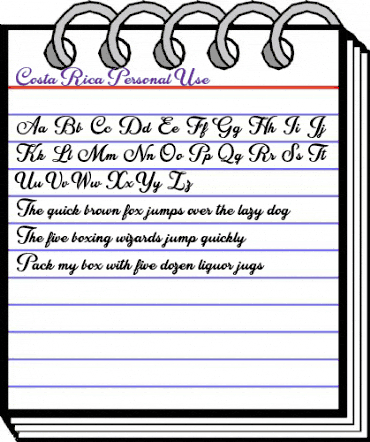 Costa Rica Personal Use
Aa Bb Cc Dd Ee Ff Gg Hh Ii Jj
Kk Ll Mm Nn Oo Pp Qq Rr Ss Tt
Uu Vv Ww Xx Yy Zz
The quick brown fox jumps over the lazy dog
The five boxing wizards jump quickly
Pack my box with five dozen liquor jugs